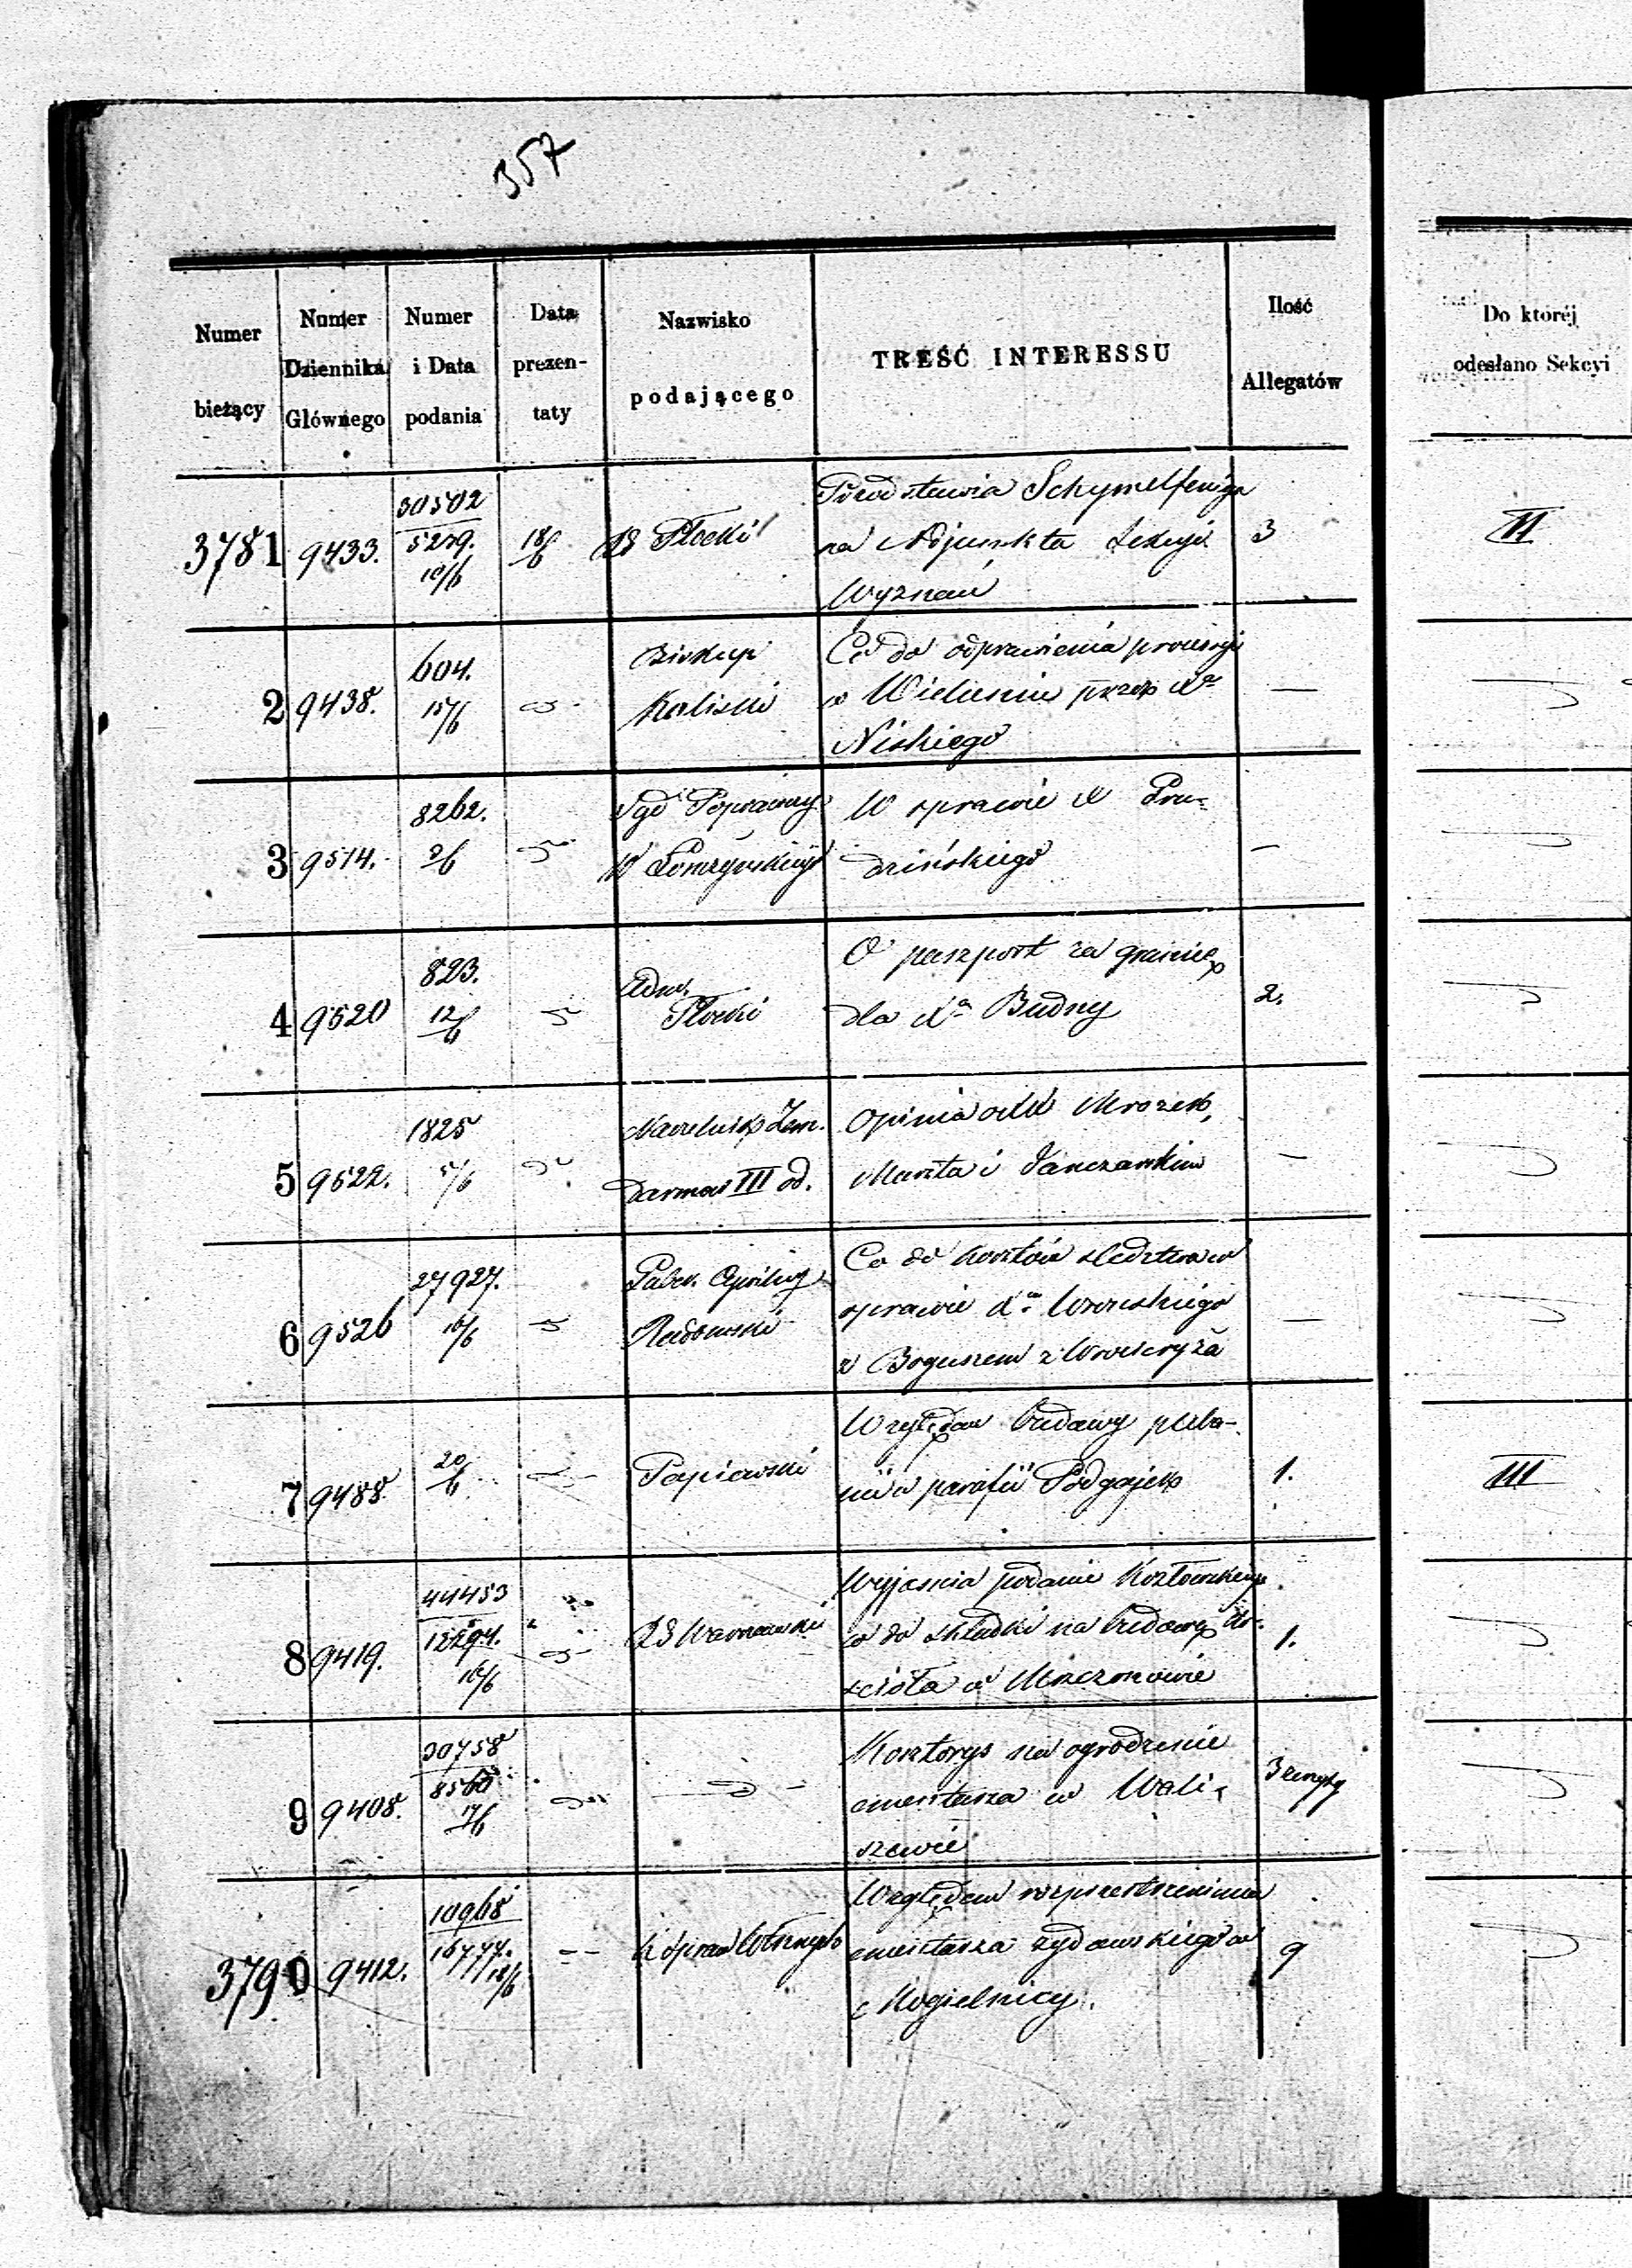 357
Numer bieżący
Numer Dziennika Głównego
Numer i Data podania
Data prezen-taty
Nazwisko podającego
TREŚĆ INTERESSU
Ilość Allegatów
Do któréj odesłano Sekcyi
3781 9433. 30502 5279. 18/6 Płocki 3 II
Przedstawia Schymelfeniga
na Adjunkta Sekcyi
Wyznań
2 9438. 604. 15/6 Biskup Kaliski —
Co do odprawienia processyi
w Wieluniu przez Xa
Niskiego
3 9514. 8262. 9/6 Sąd Poprawczy —
W sprawie X
dzińskiego
4 9520 823. 12/6 Adm. Płocki 2.
O paszport za granicę
dla Xa Budny
5 9522. 1825 5/6 Naczelnik Żan-
darmów III od. —
Opinia o XX Mrozek,
Muszta i Janczarskim
6 9526 27927. 16/6 Radomski —
Co do kosztów śledztwa w
sprawie Xa
z Boguszem z
7 9488. 20/6 Papiewski 1. III
Względem budowy pleba-
nii w parafii Podgajek
8 9419. 44453 16/6 RG Warszawski 1.
Wyjaśnia podanie Kozłowskiego
co do składki na budowę Ko-
ścioła w Mszczonowie
9 9408. 30758 8560 17/6
Kosztorys na ogrodzenie
cmentarza w Wali-
szewie
3790 9412. 10968 18/6 9
Względem rozprzestrzenienia
cmentarza żydowskiego w
Mogielnicy.